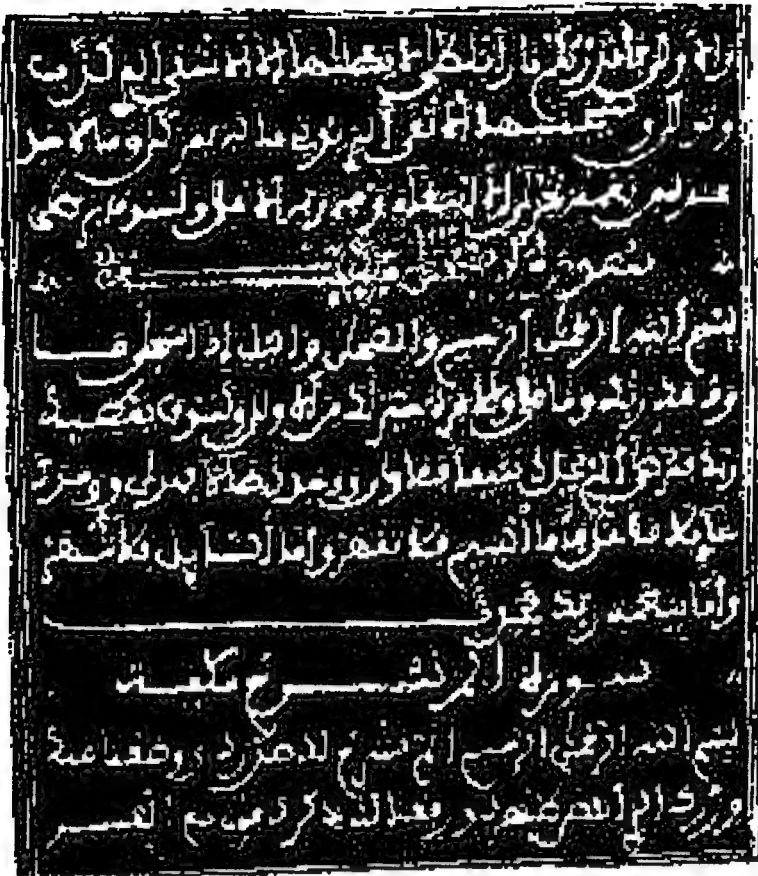 والاولى فانذرتكم نارا تلظى لا يصليها الا الاشقى الذي كذب
وتولى وسيجنبها الاتقى الذي يوتي ماله يتزكى وما لاحد
عنده من نعمة تجزى الا ابتغاء وجه ربه الاعلى ولسوف يرضى
سورة والضحى مكية
بسم الله الرحمن الرحيم والضحى واليل اذا سجى ما
ودعك ربك وما قلى وللاخرة خير لك من الاولى ولسوف يعطيك
ربك فترضى الم يجدك يتيما فاوى ووجدك ضالا فهدى ووجدك
عايلا فاغنى فاما اليتيم فلا تقهر واما السايل فلا تنهر
واما بنعمة ربك فحدث
سورة الم نشرح مكية
بسم الله الرحمن الرحيم الم نشرح لك صدرك ووضعنا عنك
وزرك الذي انقض ظهرك ورفعنا لك ذكرك فان مع العسر